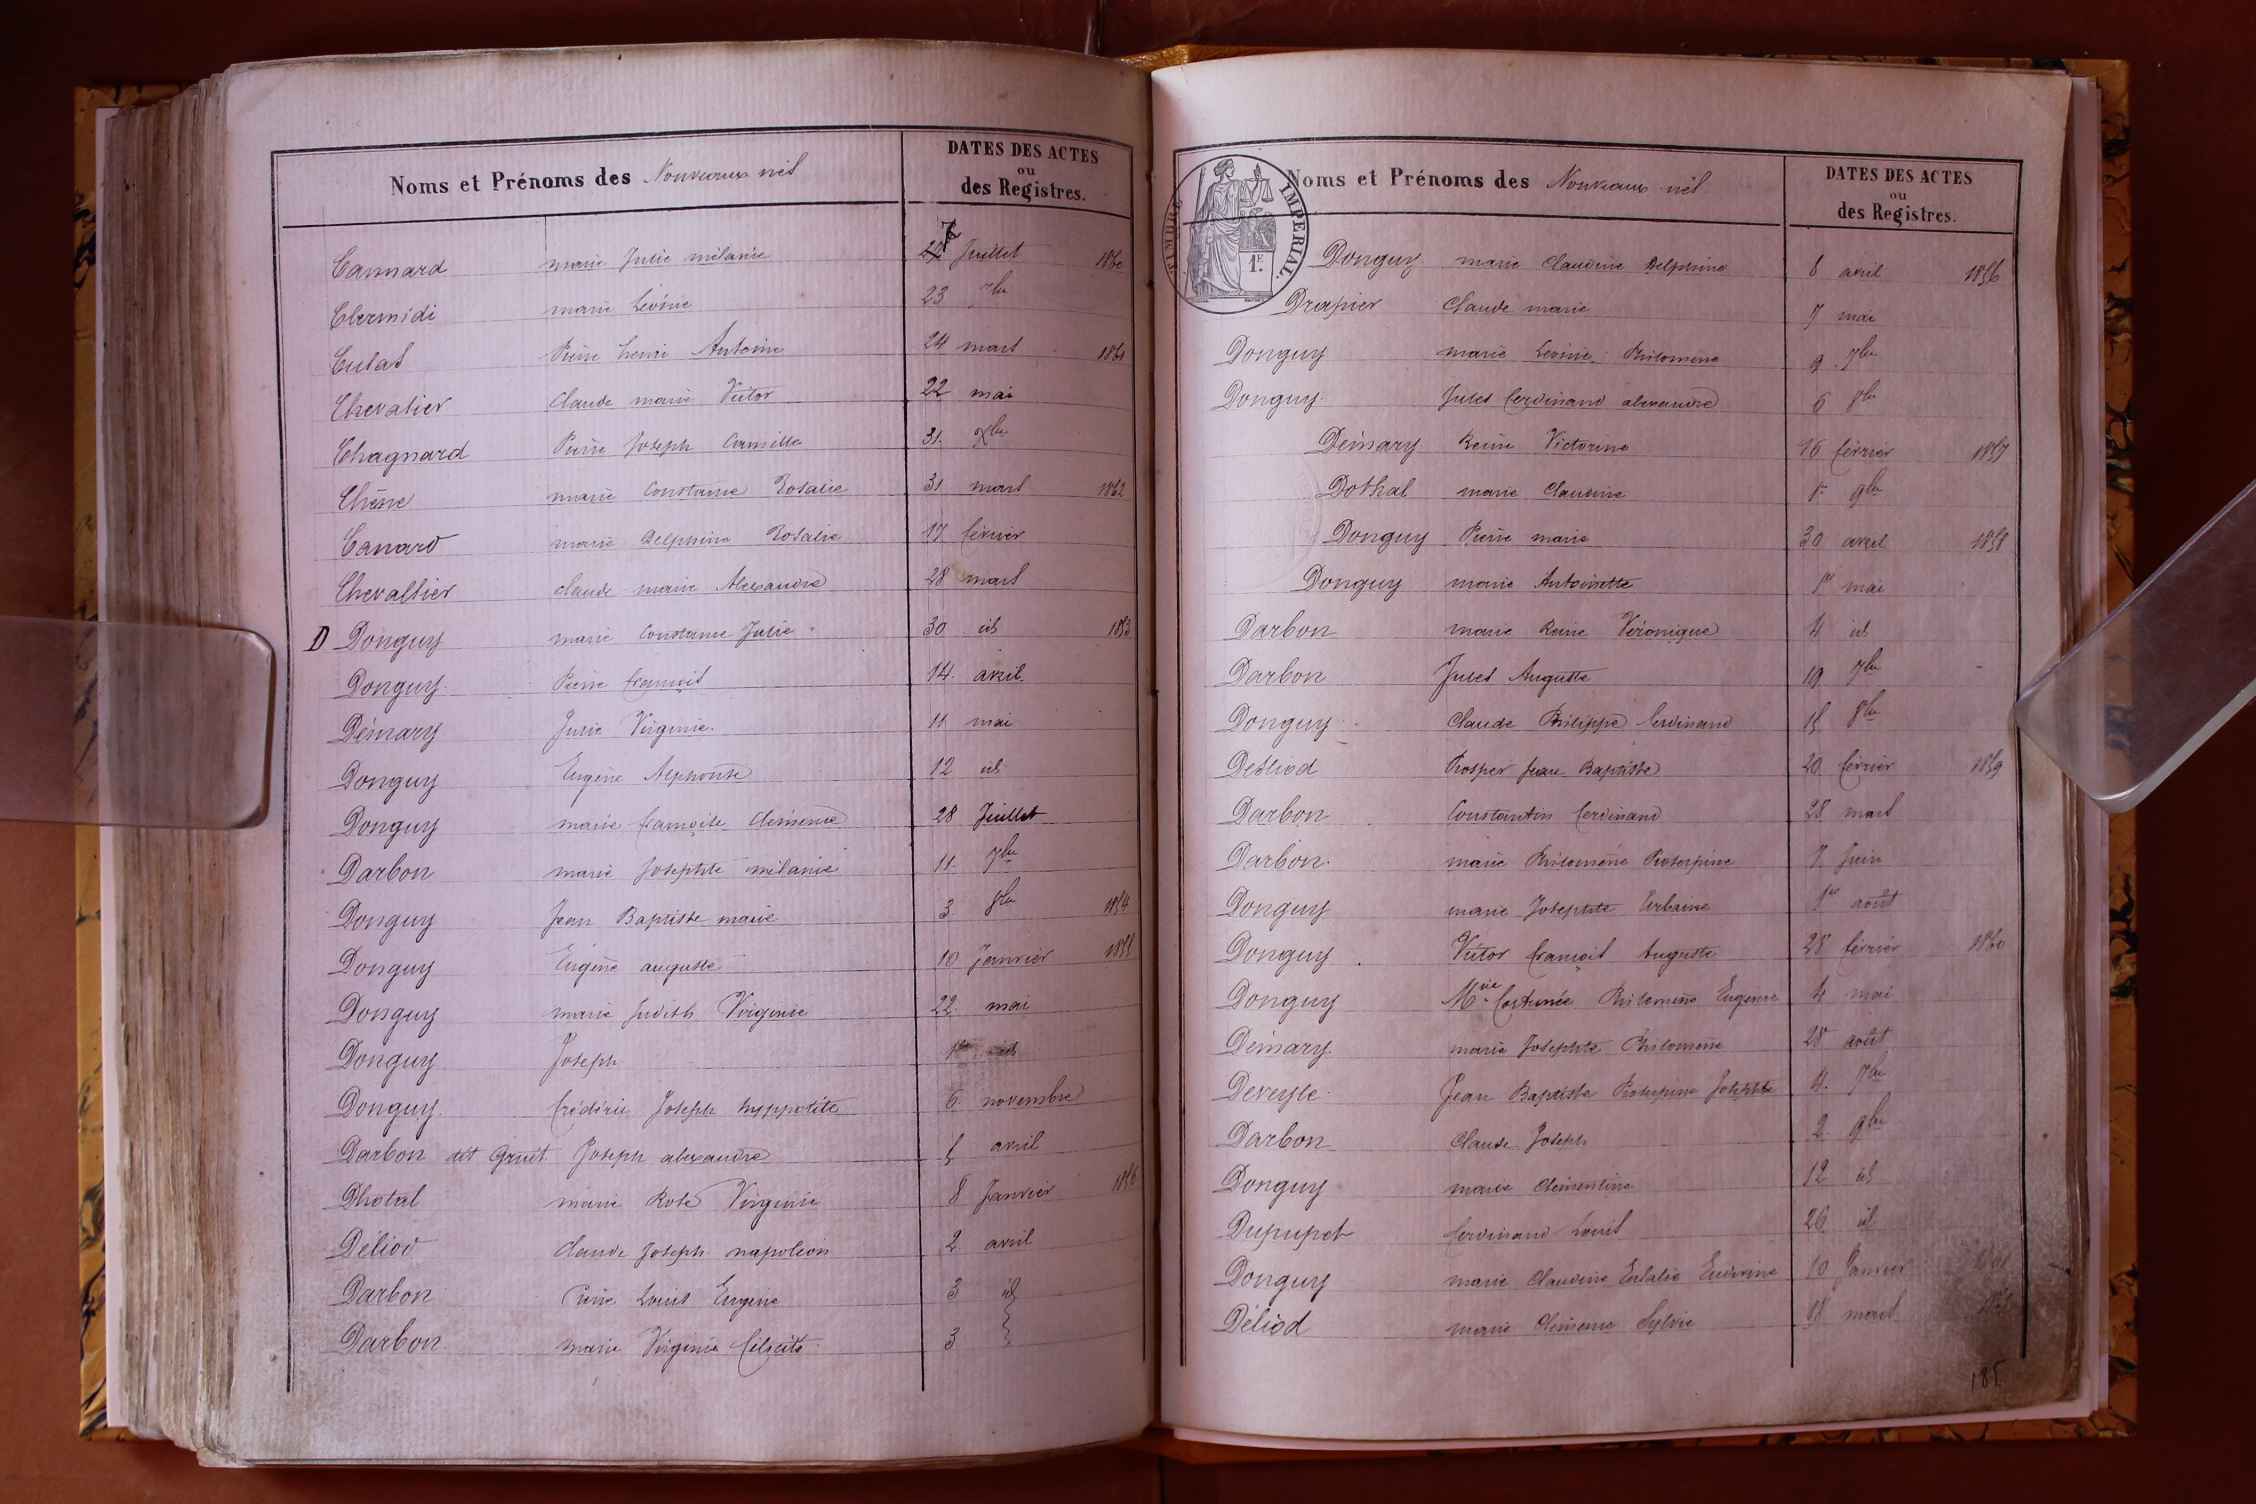 Noms et Prénoms des Nouveaux nés
DATES DES ACTES
ou
des Registres.
Cannard marie Julie mélanie 7 Juillet 1860
Chermidi marie Lévine 23 7bre
Culas Pierre henri Antoine 24 mars 1861
Chevalier claude marie Victor 22 mai
Chagnard Pierre Joseph Camille 31
Chêne marie Constance Rosalie 31 mars 1862
Canard marie Delphine Rosalie 17 février
Chevallier claude marie Alexandre 28 mars
D Donguy marie Constance Julie 30 id 1853
Donguy Pierre françois 14 avril
Démary Julie Virginie 11 mai
Donguy Eugène Alphonse 12 id
Donguy marie françoise Clémence 28 Juillet
Darbon marie Josephte mélanie 11 7bre
Donguy Jean Baptiste marie 3 8bre 1854
Donguy Eugène auguste 10 Janvier 1855
Donguy marie Judith Virginie 22 mai
Donguy Joseph id
Donguy frédéric Joseph hyppolite 6 novembre
Darbon dit Gruet Joseph alexandre 5 avril
Dhotal marie Rose Virginie 8 Janvier 1856
Déliod claude Joseph napoléon 2 avril
Darbon Pierre Louis Eugène 3 id
Darbon marie Virginie félicité 3
TIMBRE IMPERIAL.
1F.
Noms et Prénoms des Nouveaux nés
DATES DES ACTES
ou
des Registres.
Donguy marie Claudine Delphine 8 avril 1856
Drapier Claude marie 7 mai
Donguy marie Lévine Philomène 9 7bre
Donguy Jules ferdinand alexandre 6 8bre
Démary Reine Victorine 16 février 1857
Dothal marie Claudine 1er 9bre
Donguy Pierre marie 30 avril 1858
Donguy marie Antoinette 1er mai
Darbon marie Reine Véronique 4 id
Darbon Jules Auguste 19 7bre
Donguy Claude Philippe ferdinand 15 8bre
Desliod Prosper Jean Baptiste 20 février 1859
Darbon Constantin ferdinand 28 mars
Darbon marie Philomène Proserpine 7 Juin
Donguy marie Josephte Urbaine 1er août
Donguy Victor françois Auguste 28 février 1860
Donguy Mie fortunée Philomène Eugénie 4 mai
Démary marie Josephte Philomène 28 août
Deveyle Jean Baptiste Joseph 4 7bre
Darbon Claude Joseph 2 9bre
Donguy marie Clémentine 12 id
Dupupet ferdinand Louis 26 id
Donguy marie Claudine Eulalie 10 Janvier 1861
Déliod marie Clémence Sylvie 18 mars
185